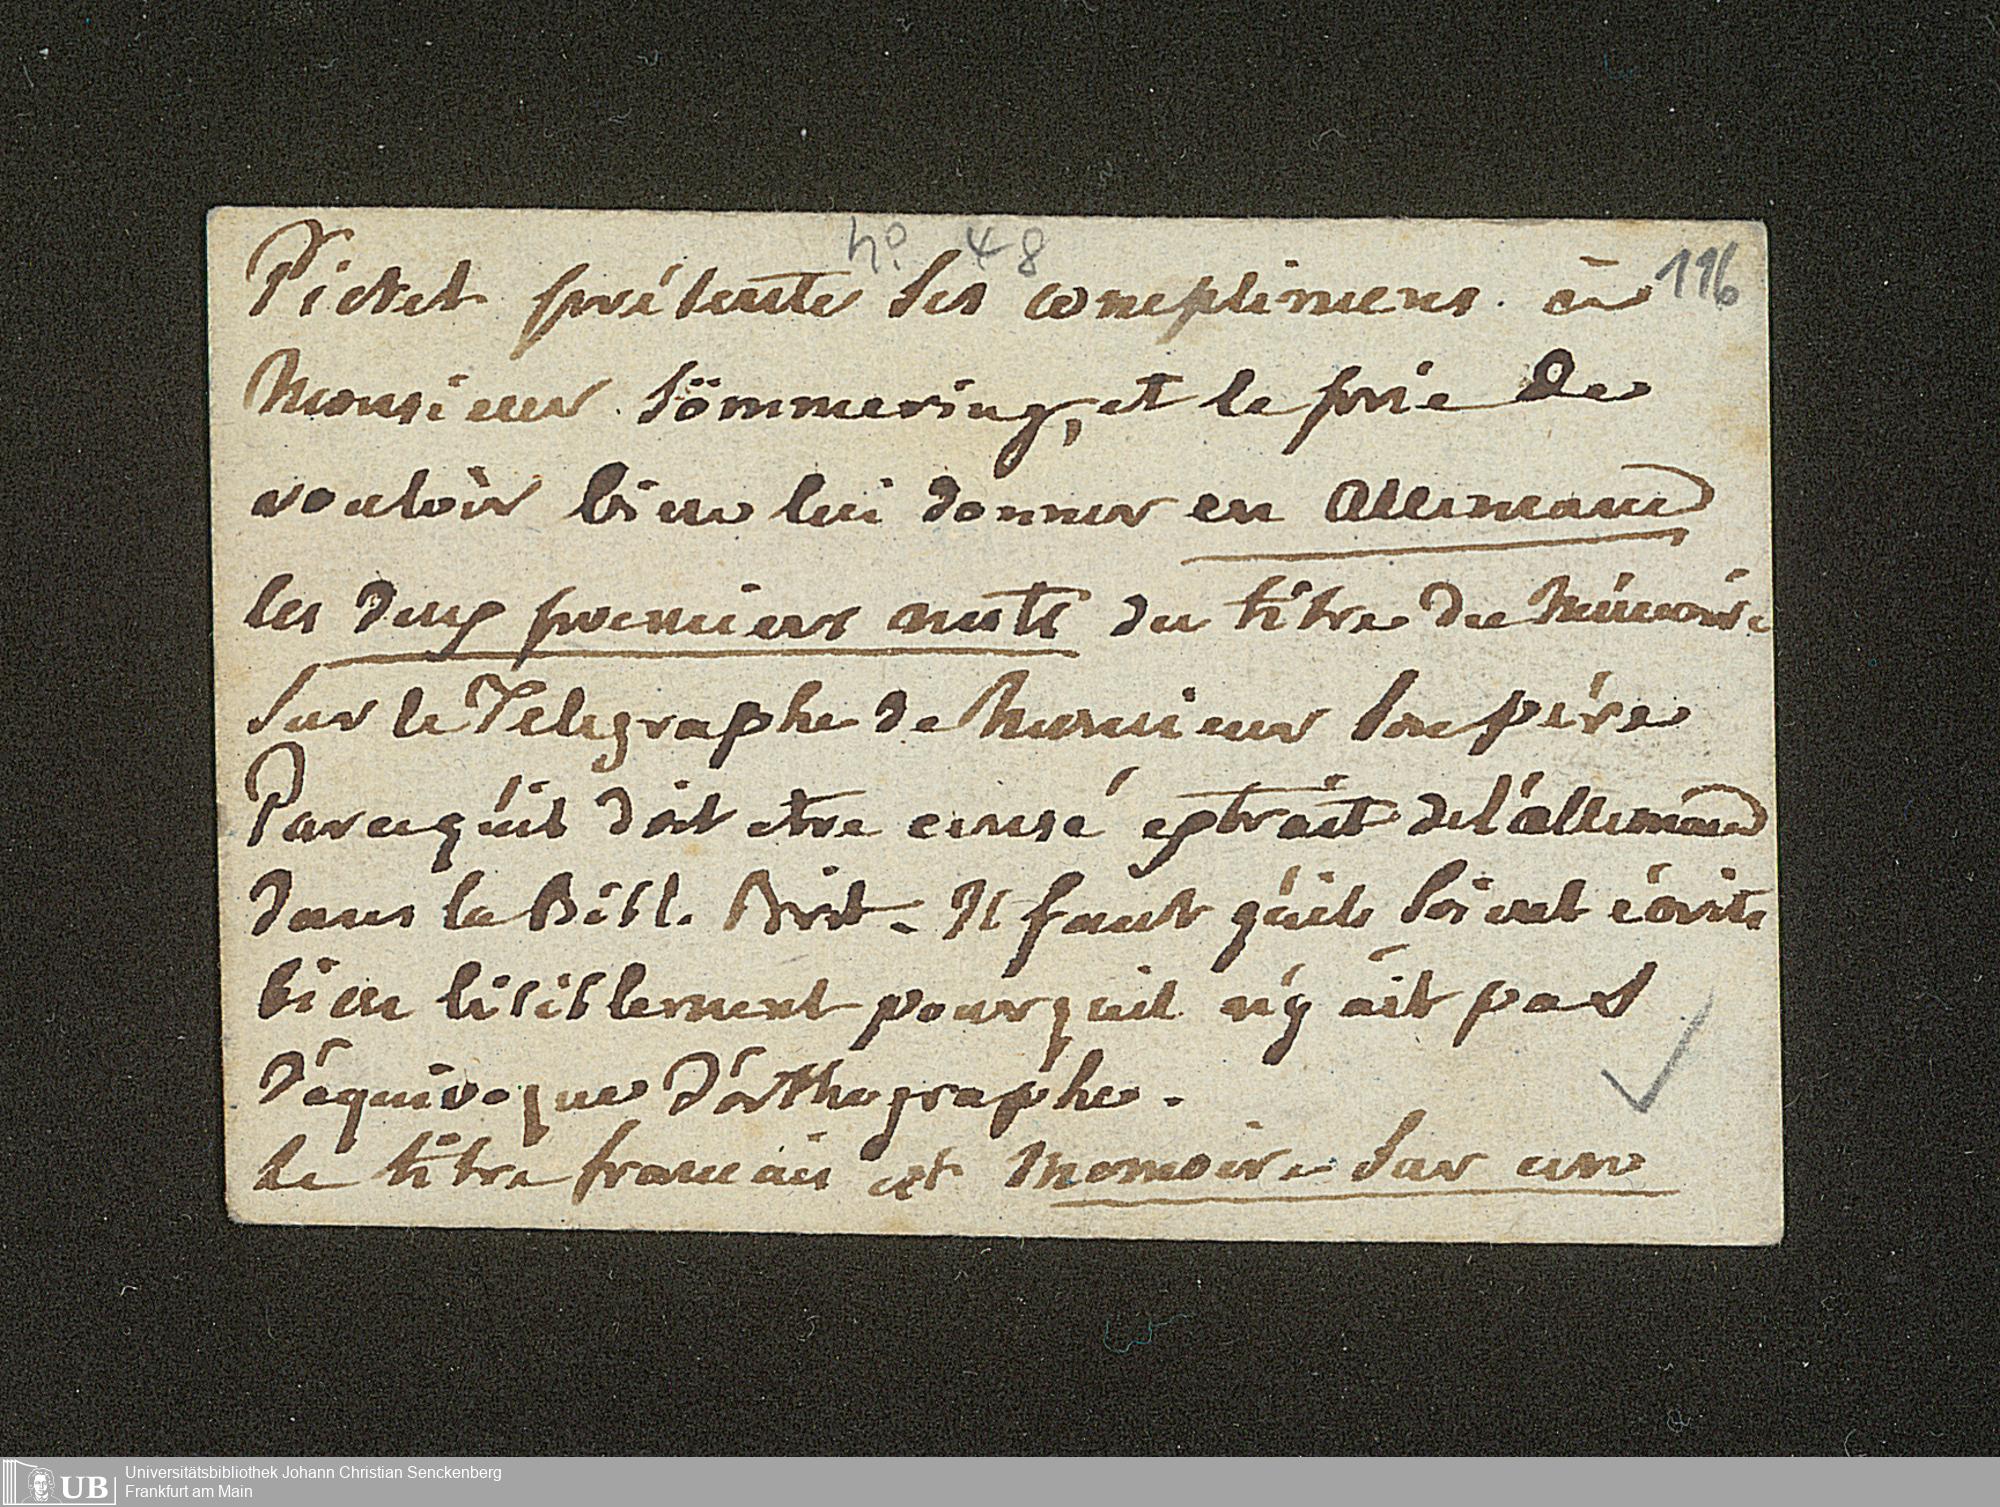 nº. 48
116
Pictet présente ses complimens à
Monsieur Sömmering, et le prie de
vouloir bien lui donner en allemand
les deux premiers mots du titre du Mémoire
sur le Télegraphe de Monsieur son père
Parcequ'il doit etre censé extrait de l'allemand
dans la Bibl. Brit. Il faut qu'ils soient écrits
bien lisiblement pourquil n'y ait pas
d'équivoque d'orthographe.
Le titre francais est Memoire sur un
Universitätsbibliothek Johann Christian Senckenberg
UB Frankfurt am Main